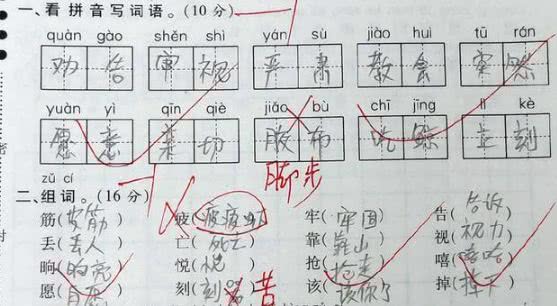 一、看拼音写词语。(10分)
quàn gào shěn shì yán sù jiào huì tū rán
劝告 审视 严肃 教会 突然
yuàn yì qīn qiè jiāo bù chī jīng lì kè
愿意 亲切 胶布 吃鲸 立刻
脚步
zǔ cí
二、组词。(16分)
筋(安筋) 疲( ) 牢(牢固) 告(告诉)
丢(丢人) 亡(死亡) 靠(靠山) 视(视力)
晌( ) 悦( ) 抢(抢走) 嘻(嘻哈)
愿(自愿) 刻(刻 苦 该(该你了 掉(掉下